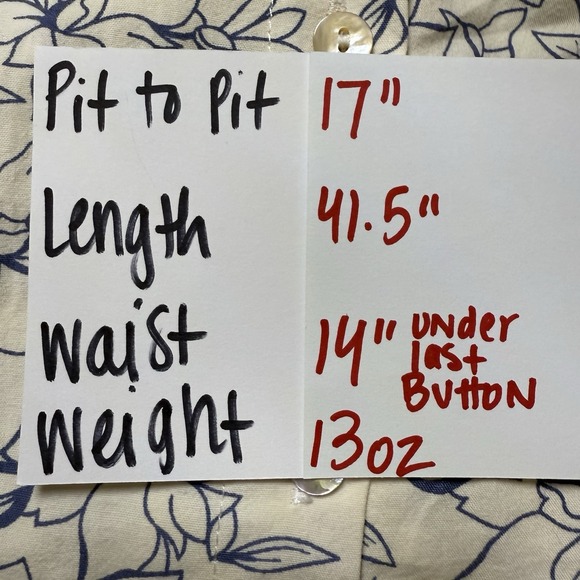 Pit to Pit 17"
Length 41.5"
Waist 14" under
last
Button
Weight 13oz